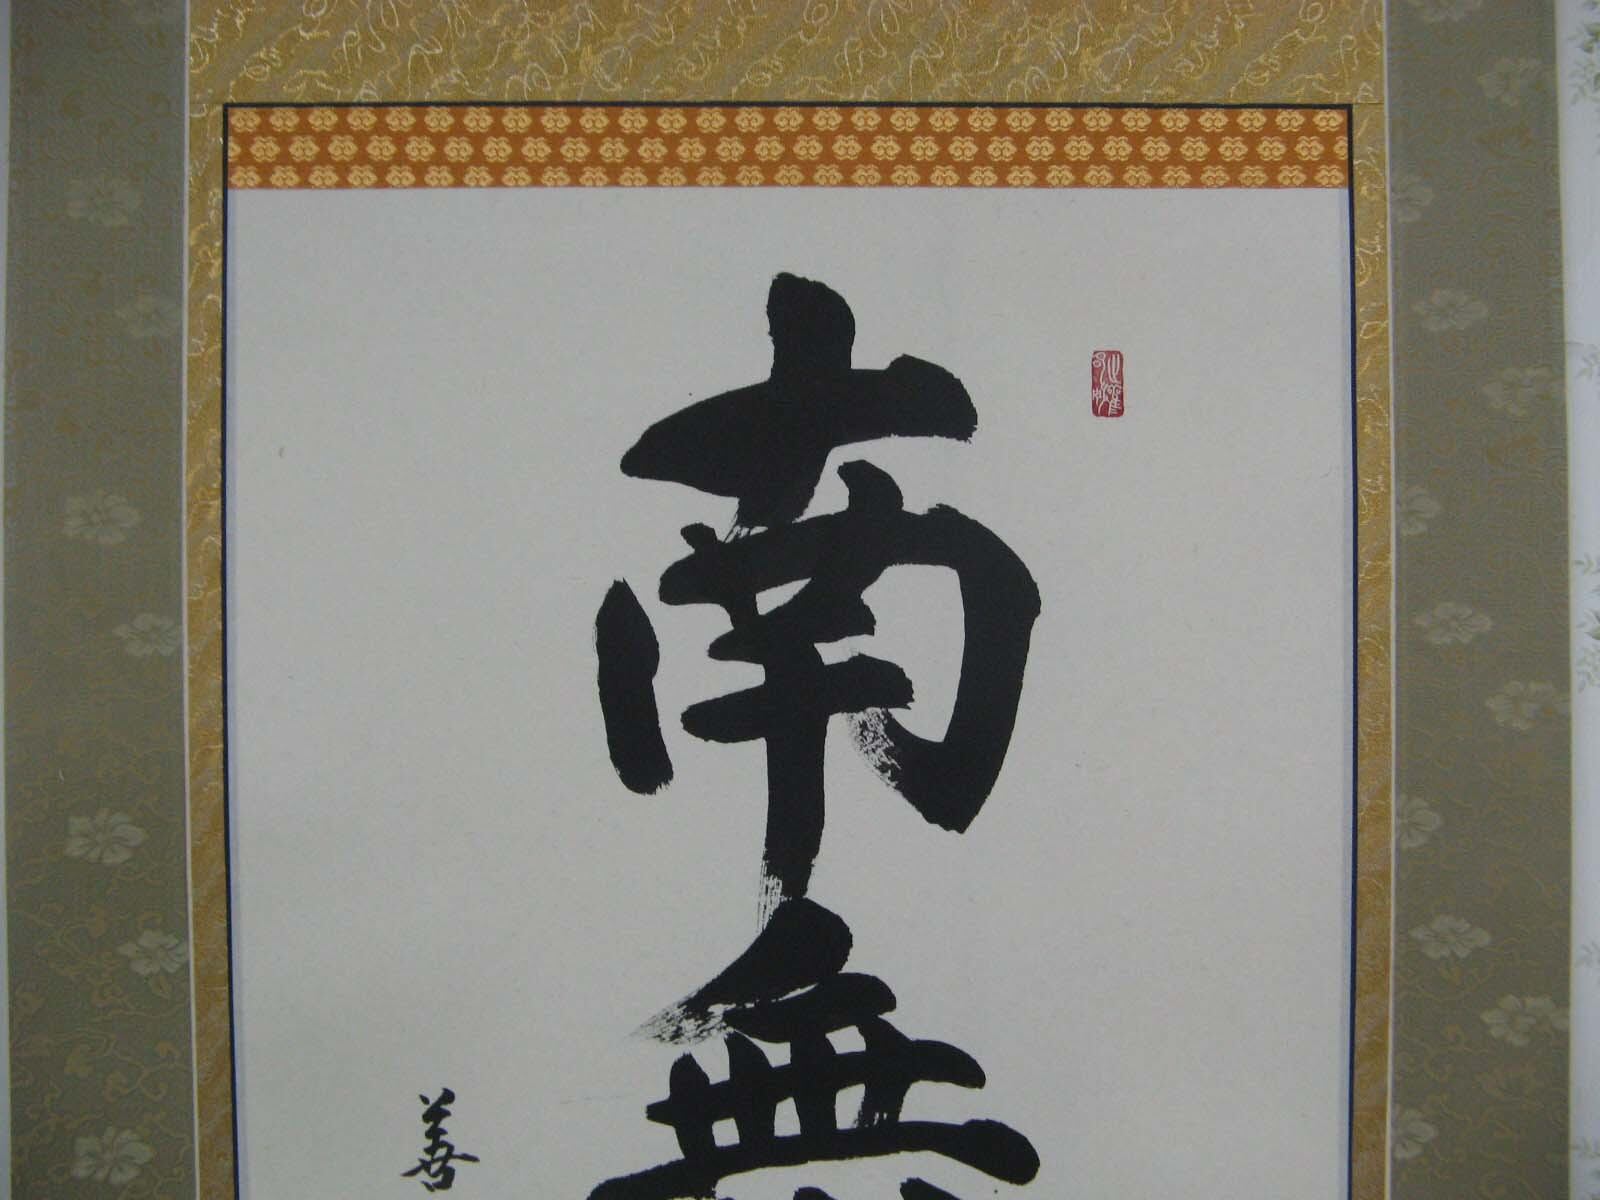 南無
善